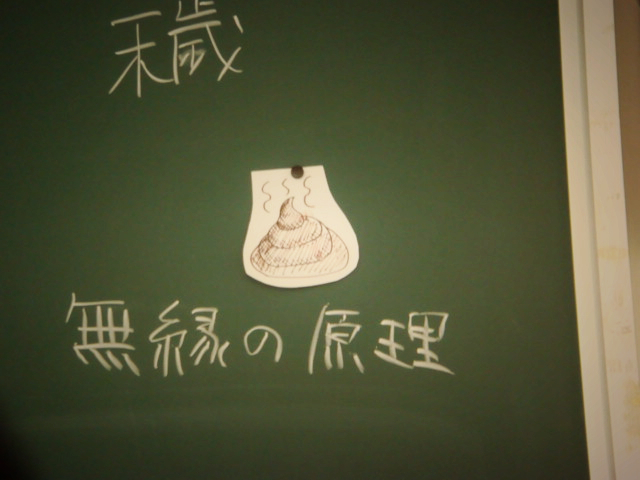 穢
無縁の原理